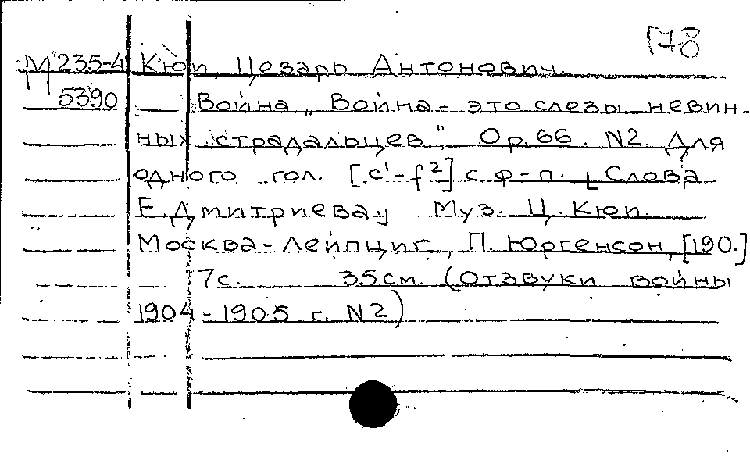 178
М 235-4 Кюи Цезарь Антонович
5390 Война „Война - это слезы невин-
ных страдальцев". Op. 66. N2. Для
одного гол. [c¹-f²] с ф-п. Слова
Е. Дмитриева; Муз. Ц. Кюи.
Москва-Лейпциг, П. Юргенсон, [190.]
7с. 35см. (Отзвуки войны
1904-1905 г. N2)